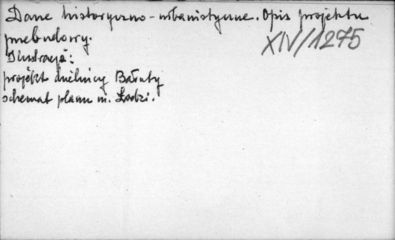 Dane historyczno-urbanistyczne. Opis projektu
przebudowy.
XIV/1275
Ilustracja:
projekt dzielnicy Bałuty
schemat planu m. Łodzi.